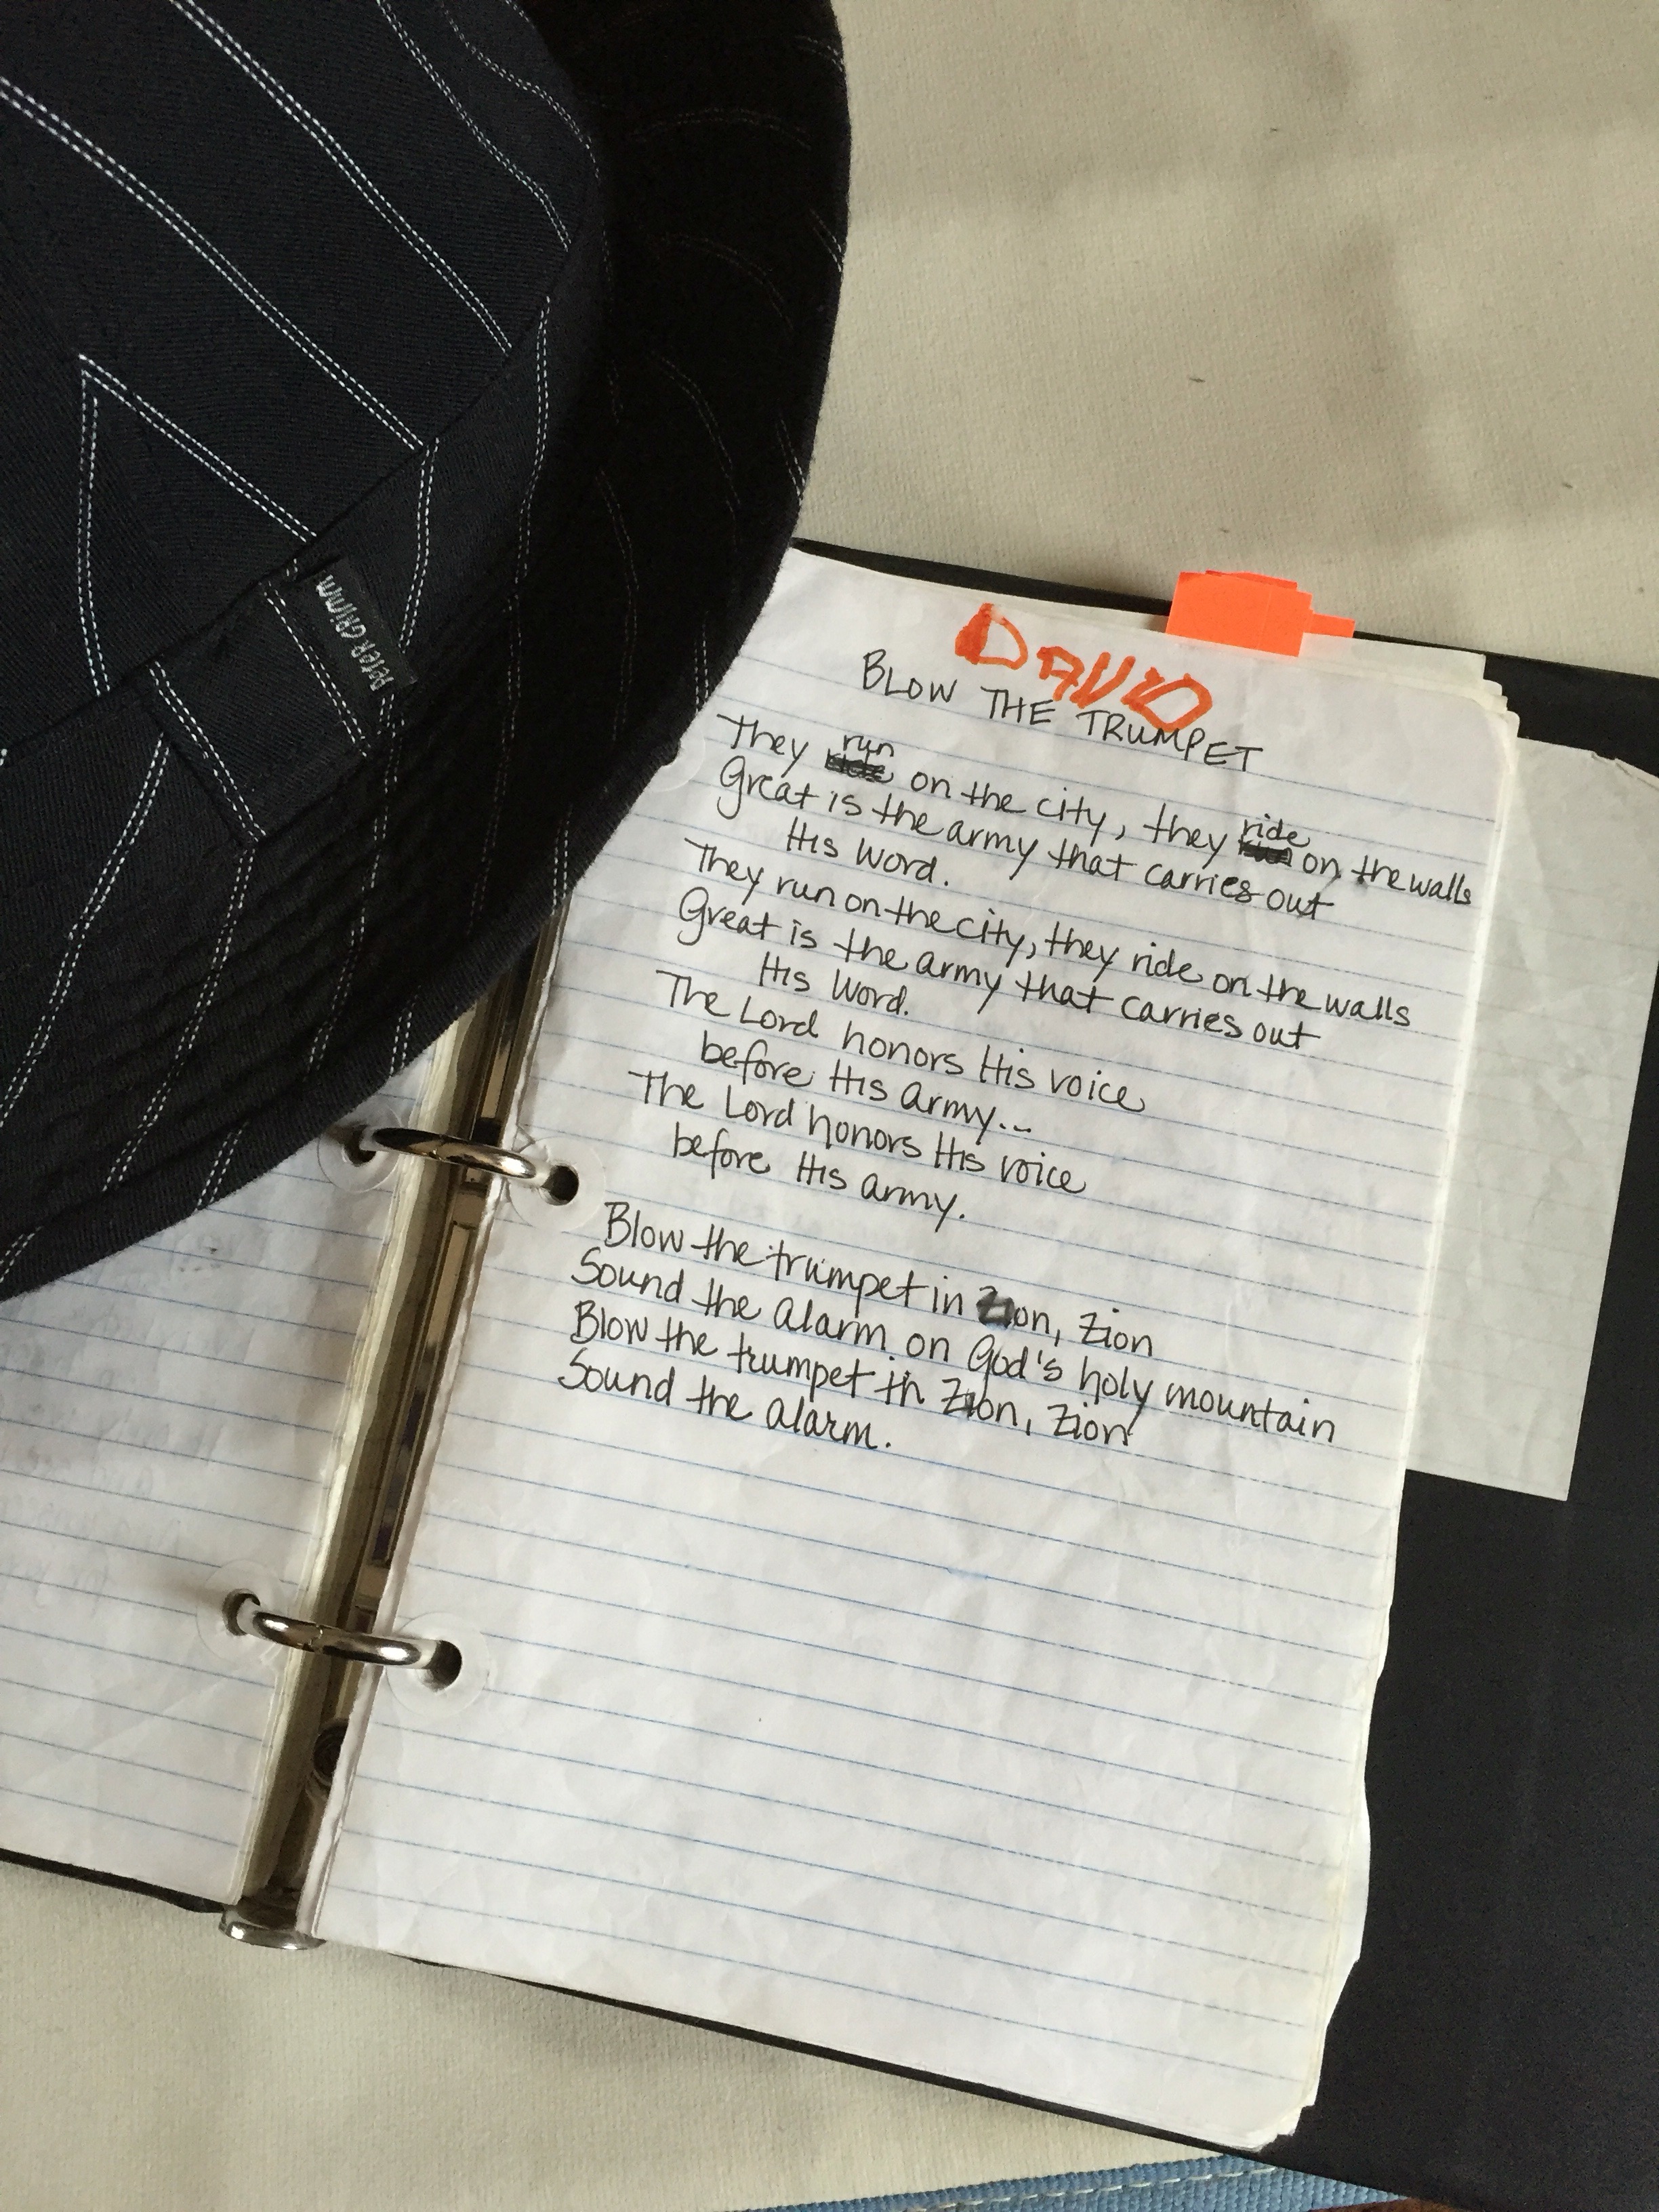 DAVID
BLOW THE TRUMPET
They run on the city, they ride on the walls
Great is the army that carries out
His Word.
They run on the city, they ride on the walls
Great is the army that carries out
His Word.
The Lord honors His voice
before His army...
The Lord honors His voice
before His army.
Blow the trumpet in Zion, Zion
Sound the alarm on God's holy mountain
Blow the trumpet in Zion, Zion
Sound the alarm.
PETER GRIMM